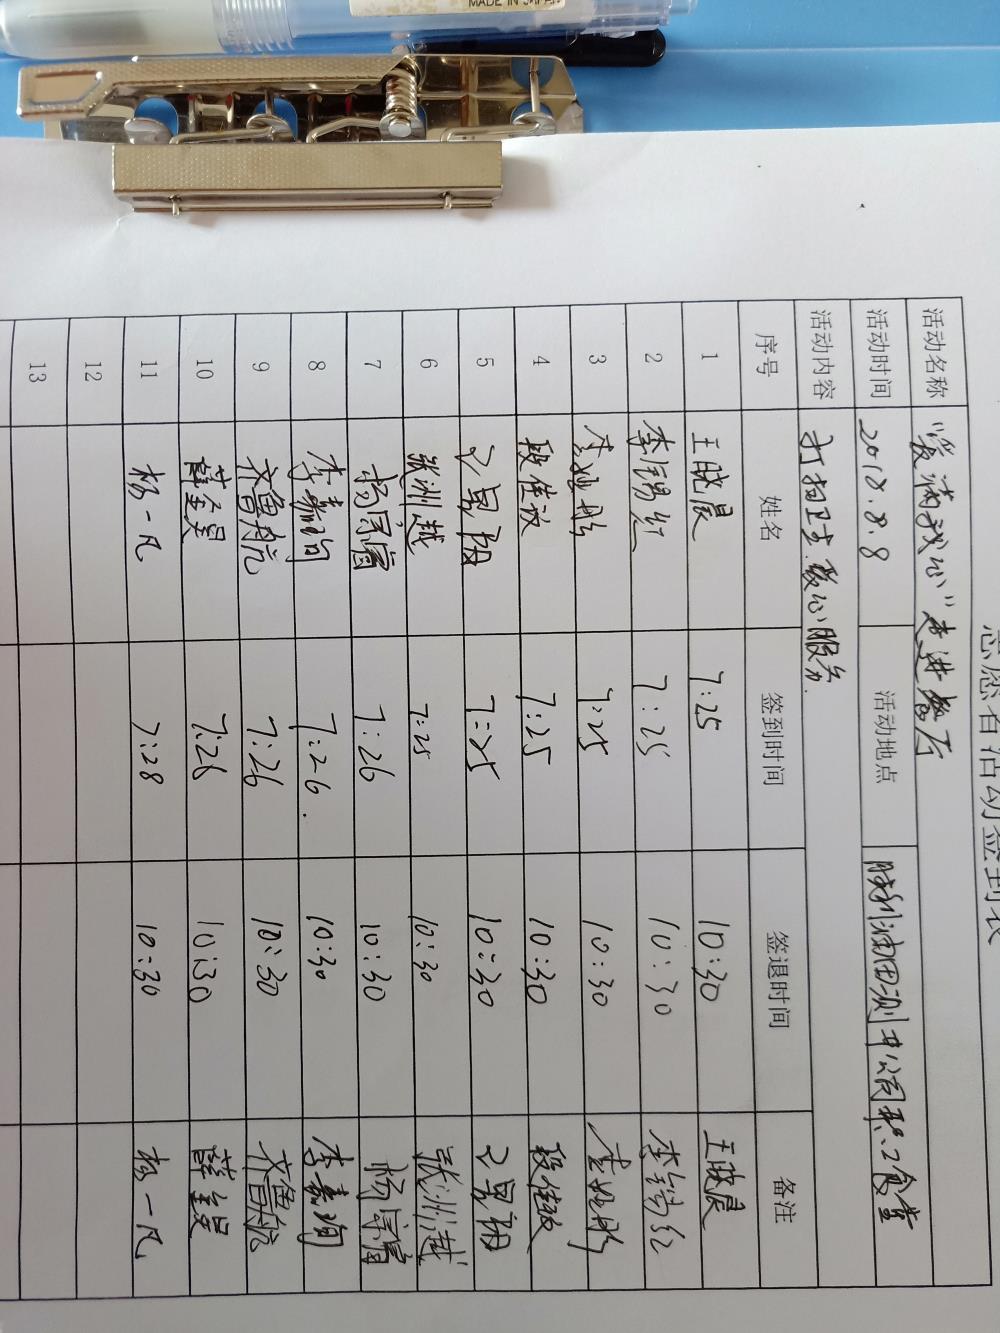 MADE IN JAPAN
志愿者活动签到表
活动名称 "爱满我心"走进餐厅
活动时间 2018.8.8 活动地点 胜利油田测井公司职工食堂
活动内容 打扫卫生.爱心服务.
序号 姓名 签到时间 签退时间 备注
1 王晓晨 7:25 10:30 王晓晨
2 李锡红 7:25 10:30 李锡红
3 7:25 10:30
4 段佳敏 7:25 10:30 段佳敏
5 7:25 10:30
6 张洲越 7:25 10:30 张洲越
7 杨宗富 7:26 10:30 杨宗富
8 李嘉珣 7:26. 10:30 李嘉珣
9 齐鲁航 7:26 10:30 齐鲁航
10 7:26 10:30
11 杨一凡 7:28 10:30 杨一凡
12
13